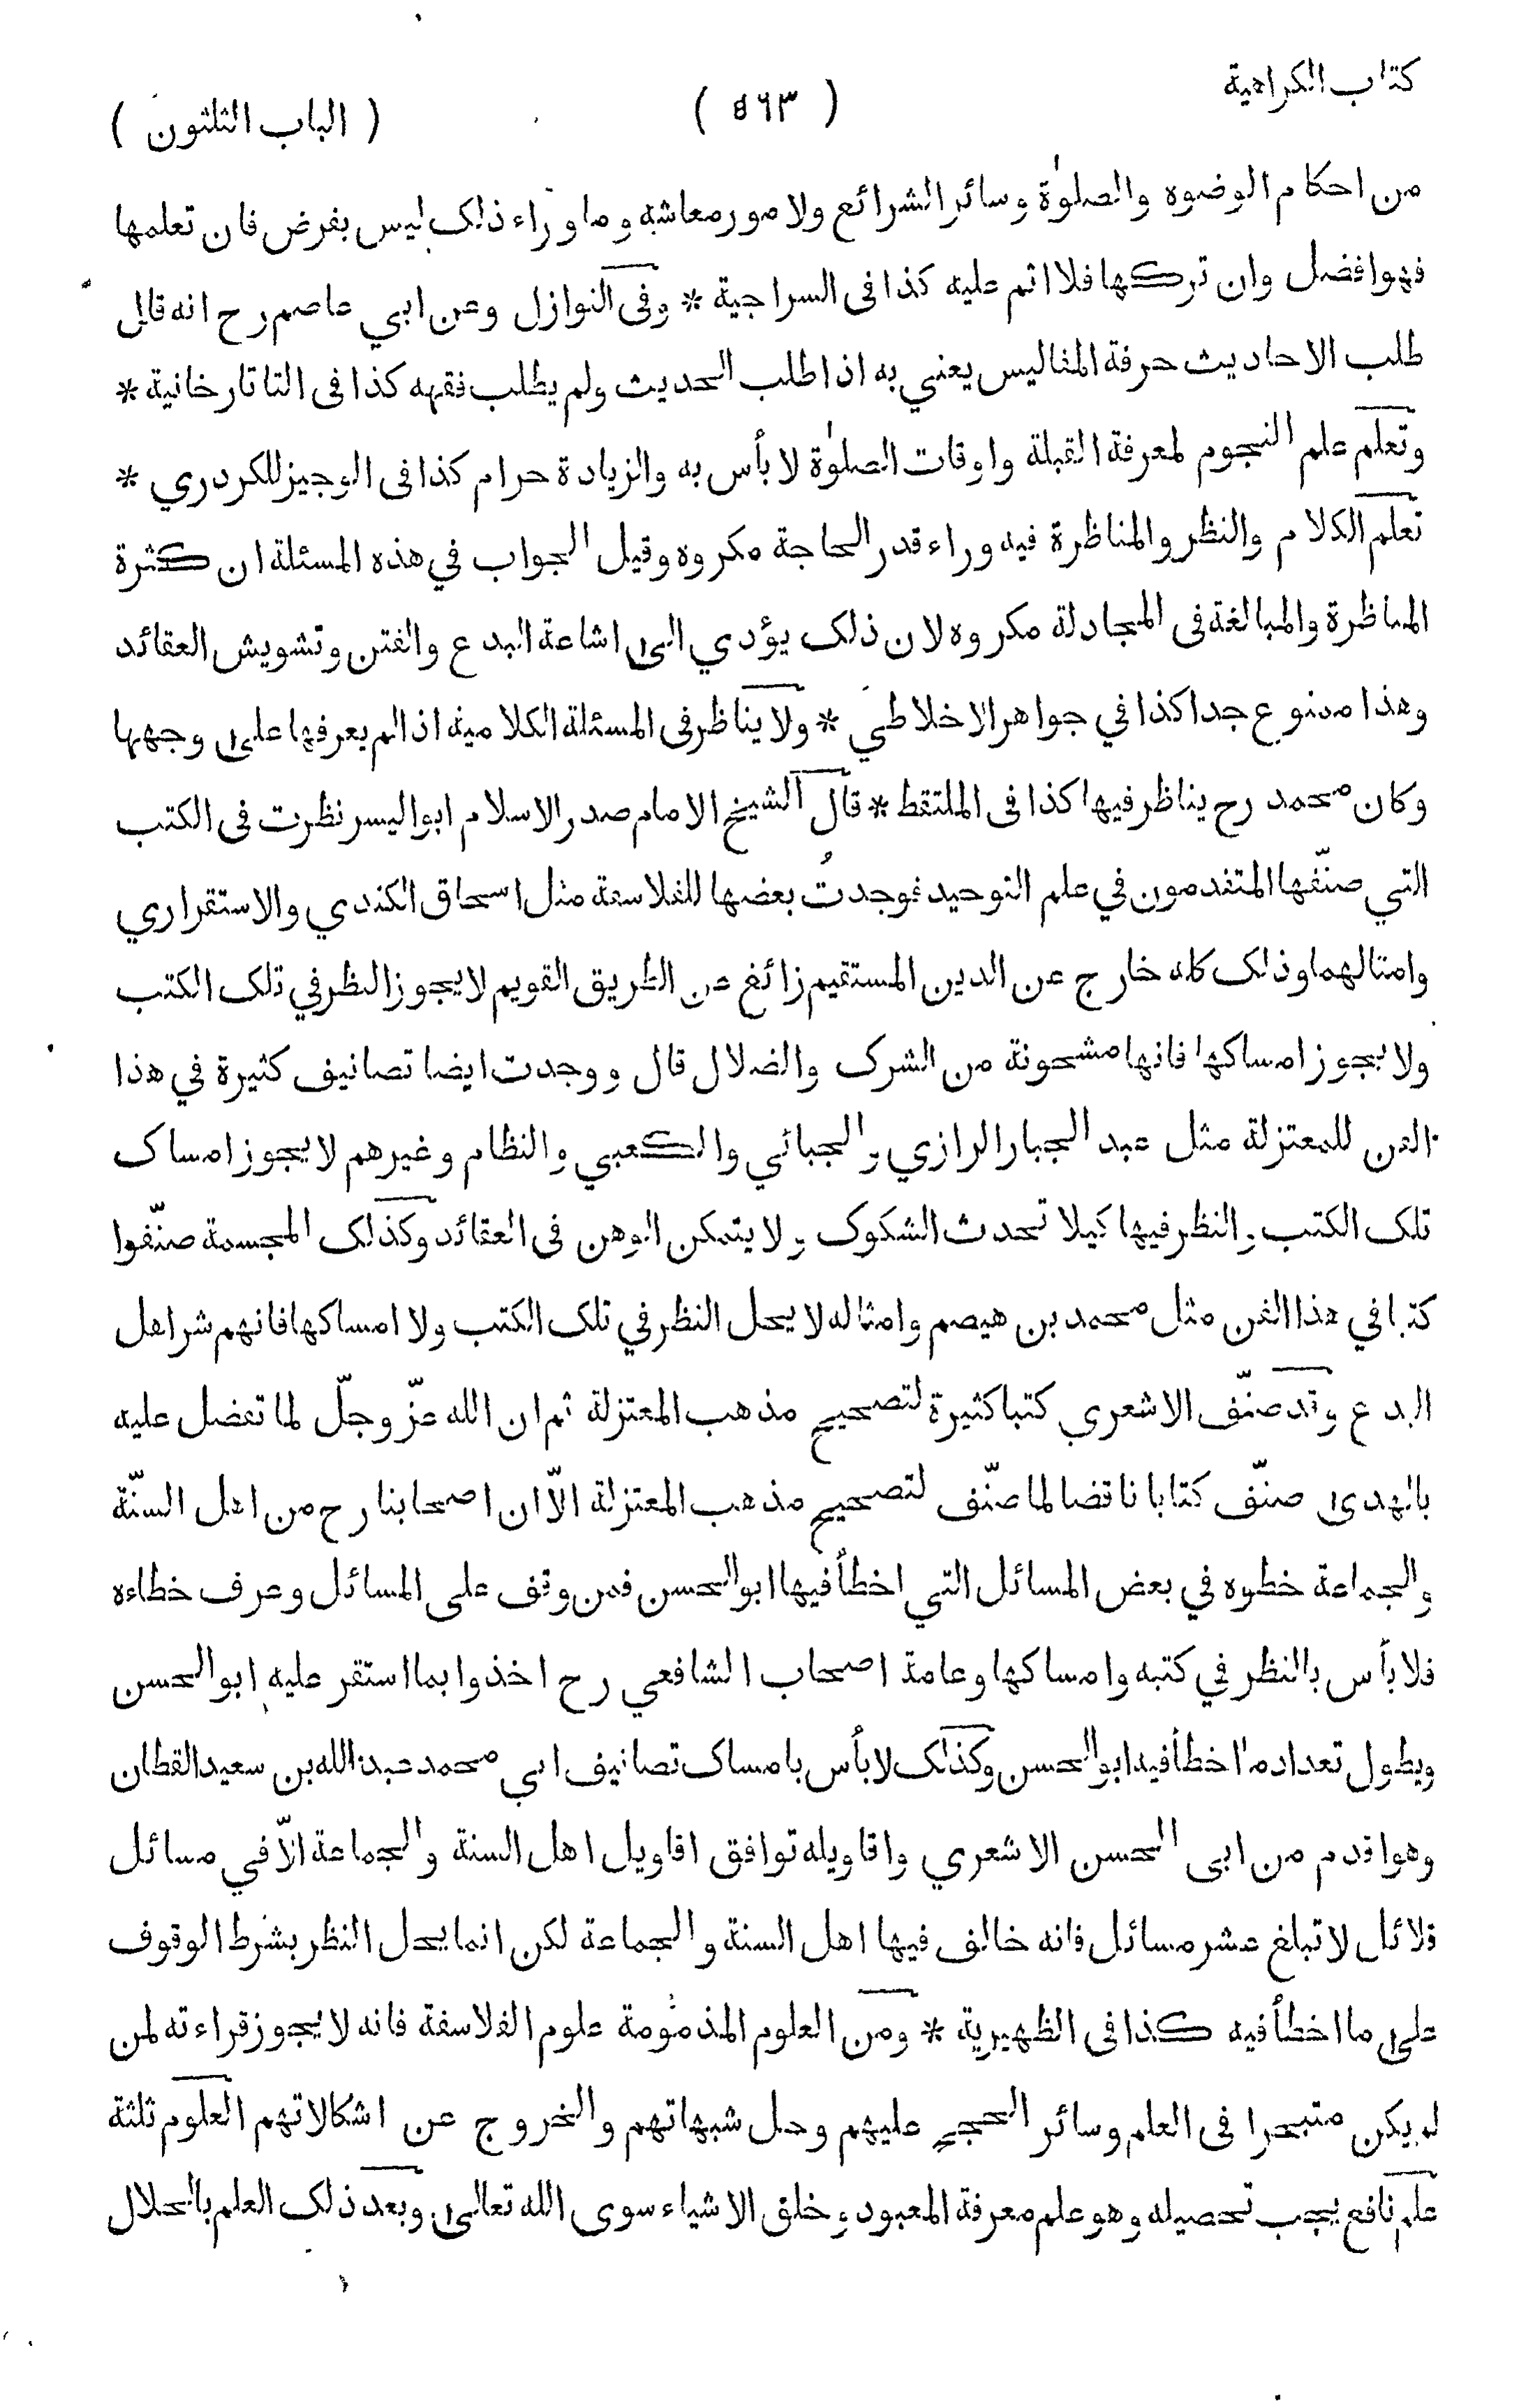 كتاب الكراهية
( ٥٦٣ )
( الباب الثلثون )
من احكام الوضوء والصلوٰة وسائر الشرائع ولامور معاشه وما وراء ذلك ليس بفرض فان تعلمها
فهوافضل وان تركها فلااثم عليه كذا فى السراجية * وفى النوازل وعن ابي عاصم رح انه قال
طلب الاحاديث حرفة المفاليس يعني به اذا طلب الحديث ولم يطلب فقهه كذا فى التاتارخانية *
وتعلم علم النجوم لمعرفة القبلة واوقات الصلوٰة لا بأس به والزيادة حرام كذا فى الوجيز للكردري *
تعلم الكلام والنظر والمناظرة فيه وراء قدر الحاجة مكروه وقيل الجواب في هذه المسئلة ان كثرة
المناظرة والمبالغة فى المجادلة مكروه لان ذلك يؤدي الى اشاعة البدع والفتن وتشويش العقائد
وهذا ممنوع جدا كذا في جواهر الاخلاطي * ولا يناظر فى المسئلة الكلامية اذا لم يعرفها على وجهها
وكان محمد رح يناظر فيها كذا فى الملتقط * قال الشيخ الامام صدر الاسلام ابواليسر نظرت فى الكتب
التي صنّفها المتقدمون في علم التوحيد فوجدتُ بعضها للفلاسفة مثل اسحاق الكندي والاستقراري
وامثالهما وذلك كله خارج عن الدين المستقيم زائغ عن الطريق القويم لا يجوز النظر في تلك الكتب
ولا يجوز امساكها فانها مشحونة من الشرك والضلال قال ووجدت ايضا تصانيف كثيرة في هذا
الفن للمعتزلة مثل عبد الجبار الرازي والجبائي والكعبي والنظام وغيرهم لا يجوز امساك
تلك الكتب والنظر فيها كيلا تحدث الشكوك ولا يتمكن الوهن فى العقائد وكذلك المجسمة صنّفوا
كتبا في هذا الفن مثل محمد بن هيصم وامثاله لا يحل النظر في تلك الكتب ولا امساكها فانهم شر اهل
البدع وقد صنّف الاشعري كتبا كثيرة لتصحيح مذهب المعتزلة ثم ان الله عزّ وجلّ لما تفضل عليه
بالهدى صنّف كتابا ناقضا لما صنّف لتصحيح مذهب المعتزلة الاّ ان اصحابنا رح من اهل السنّة
والجماعة خطوه في بعض المسائل التي اخطأ فيها ابوالحسن فمن وقف على المسائل وعرف خطاءه
فلا بأس بالنظر في كتبه وامساكها وعامة اصحاب الشافعي رح اخذوا بما استقر عليه ابوالحسن
ويطول تعداد ما اخطأ فيه ابوالحسن وكذلك لا بأس بامساك تصانيف ابي محمد عبد الله بن سعيد القطان
وهو اقدم من ابى الحسن الاشعري واقاويله توافق اقاويل اهل السنة والجماعة الاّ في مسائل
قلائل لا تبلغ عشر مسائل فانه خالف فيها اهل السنة والجماعة لكن انما يحل النظر بشرط الوقوف
على ما اخطأ فيه كذا فى الظهيرية * ومن العلوم المذمومة علوم الفلاسفة فانه لا يجوز قراءته لمن
لم يكن متبحرا فى العلم وسائر الحجج عليهم وحل شبهاتهم والخروج عن اشكالاتهم العلوم ثلثة
علم نافع يجب تحصيله وهو علم معرفة المعبود وخلق الاشياء سوى الله تعالى وبعد ذلك العلم بالحلال